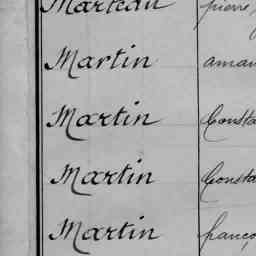 Marteau pierre
Martin aman
Martin Consta
Martin Consta
Martin franço